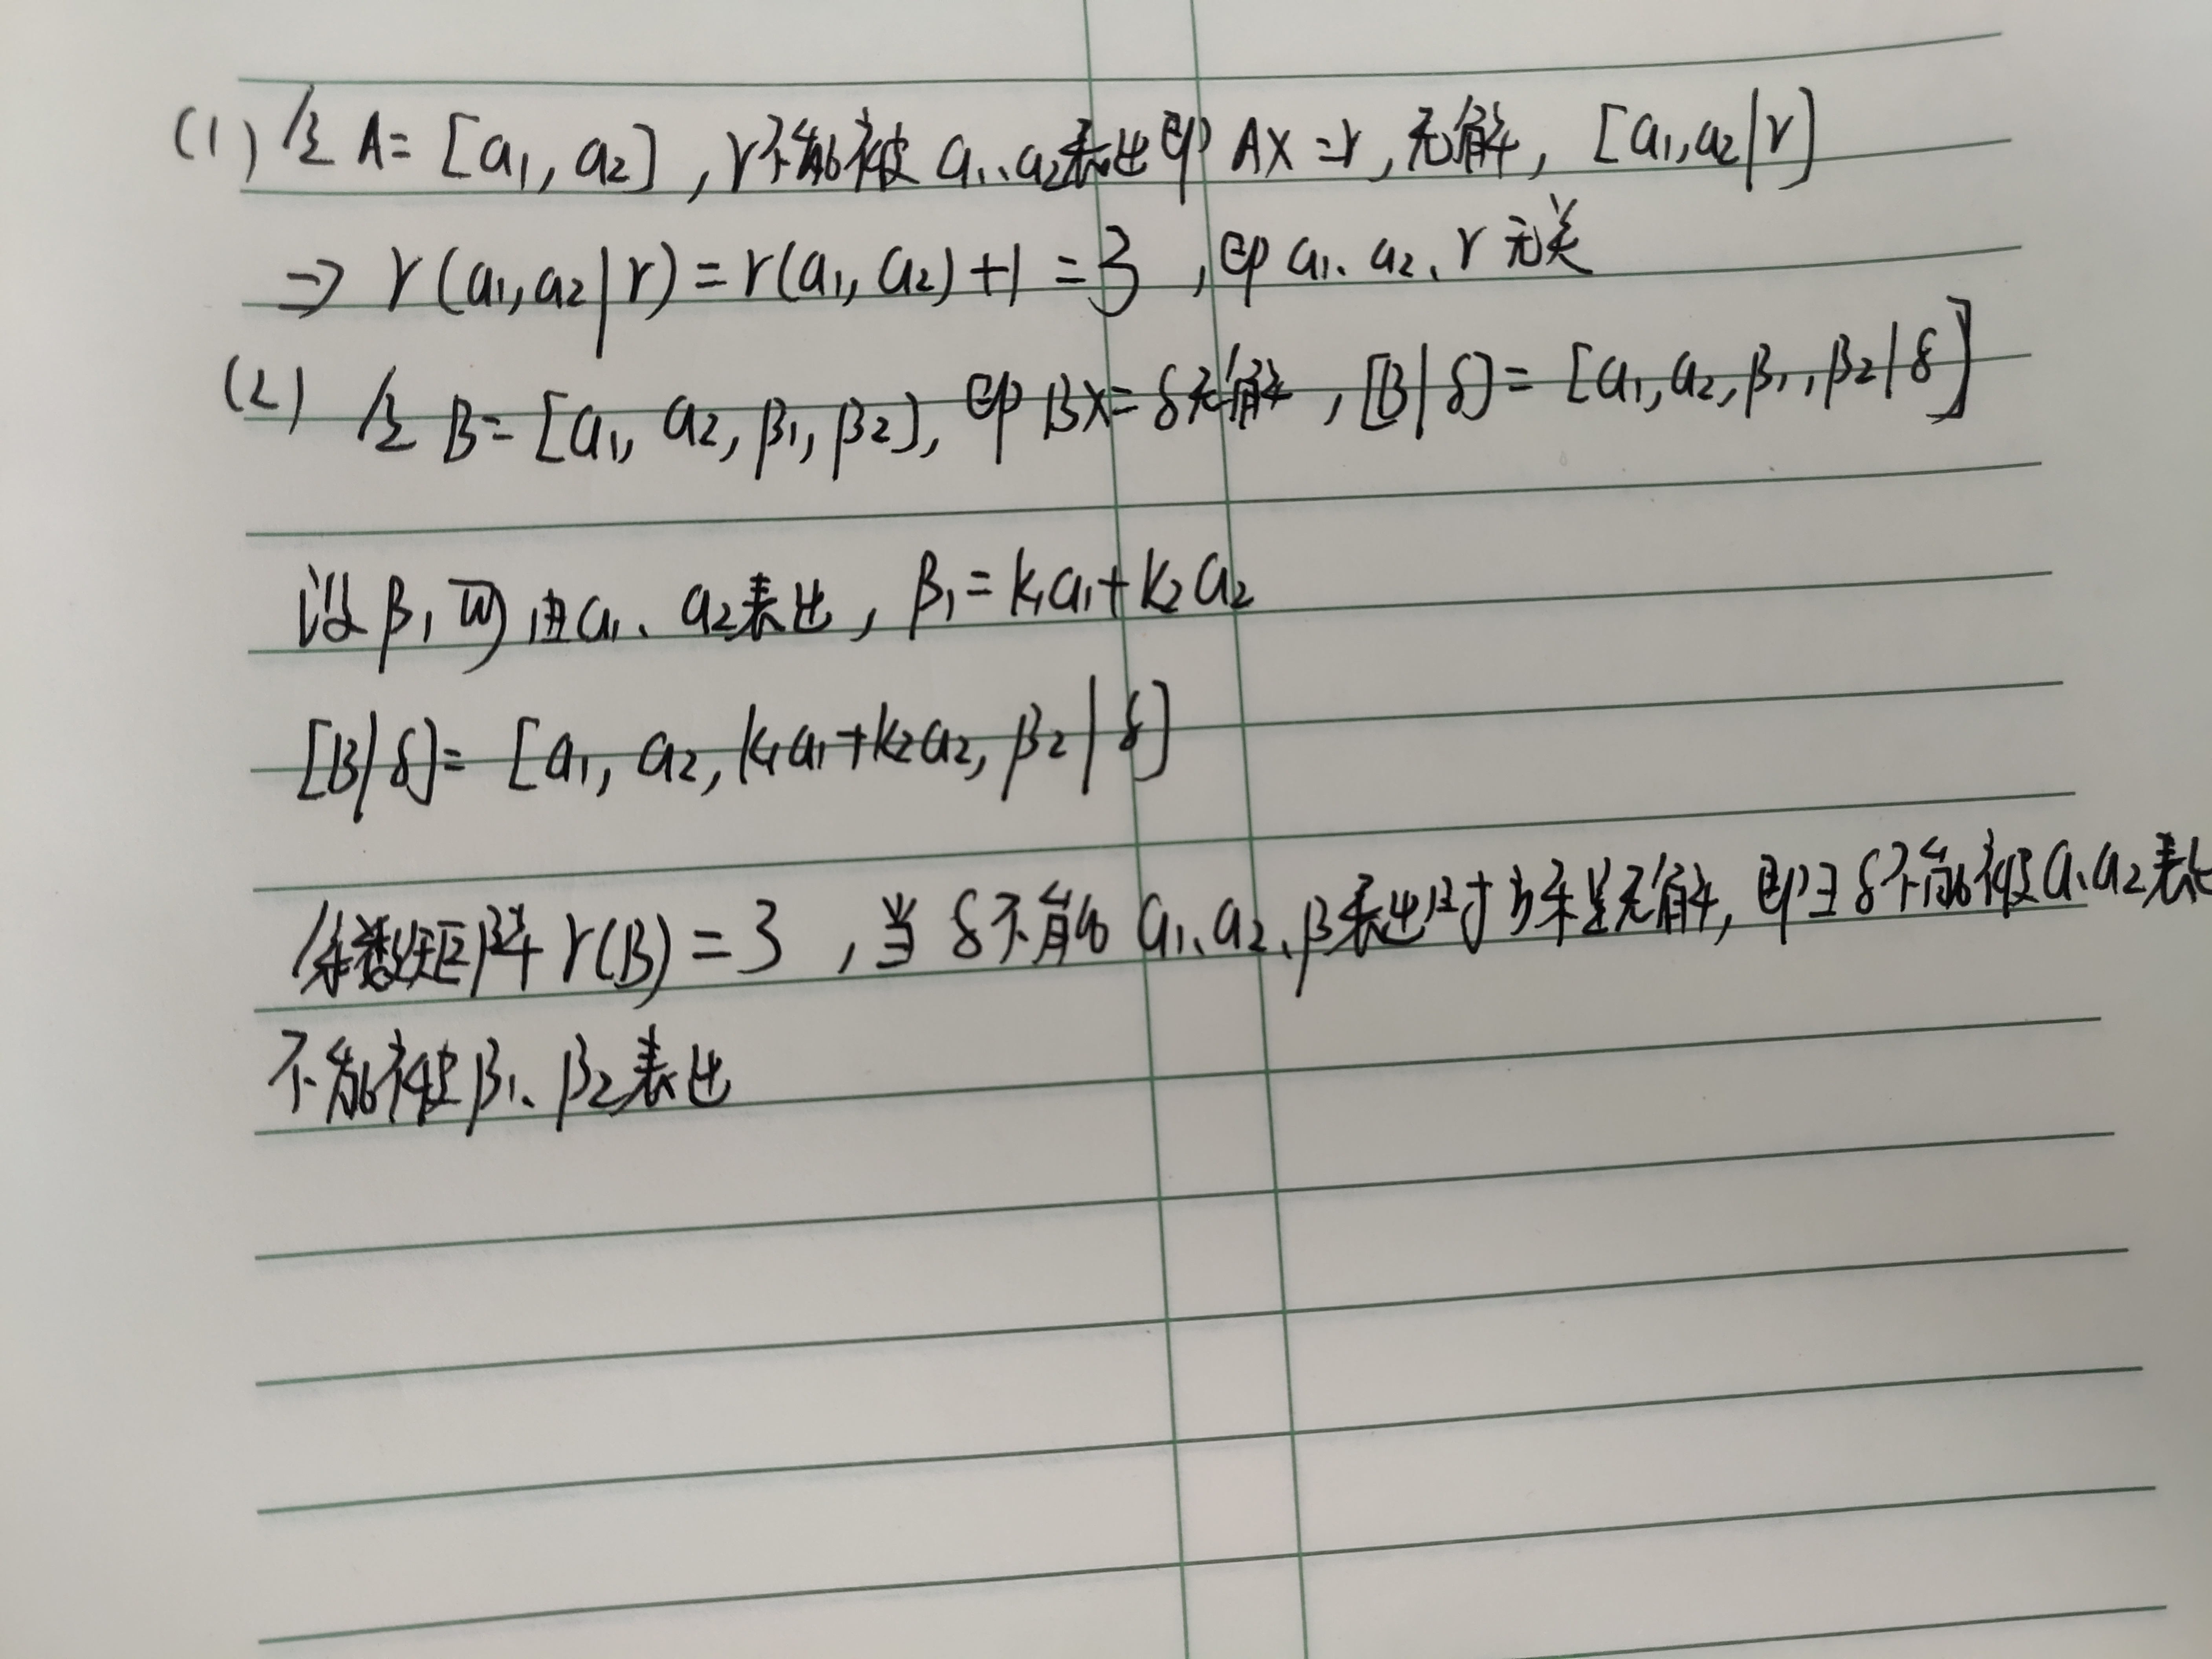 (1) 令 A= [a₁, a₂] , r不能被 a₁、a₂表出即 AX=r, 无解, [a₁,a₂|r]
⇒ r(a₁,a₂|r)=r(a₁,a₂)+1=3 , 即 a₁、a₂、r 无关
(2) 令 B= [a₁, a₂, β₁, β₂], 即 BX=δ无解 , [B|δ]= [a₁,a₂,β₁,β₂|δ]
设β₁可由a₁、a₂表出, β₁=k₁a₁+k₂a₂
[B|δ]= [a₁, a₂, k₁a₁+k₂a₂, β₂|δ]
系数矩阵 r(B)=3 , 当 δ不能 a₁、a₂、β表出时方程无解, 即∃δ不能被a₁、a₂表出
不能被β₁、β₂表出